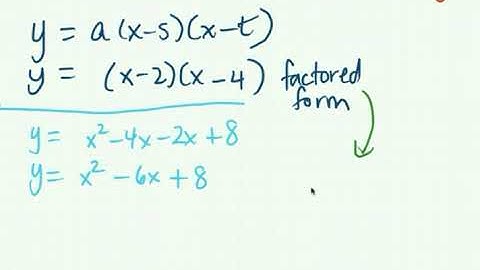 y = a(x-s)(x-t)
y = (x-2)(x-4) factored form
y = x²-4x-2x+8
y = x²-6x+8